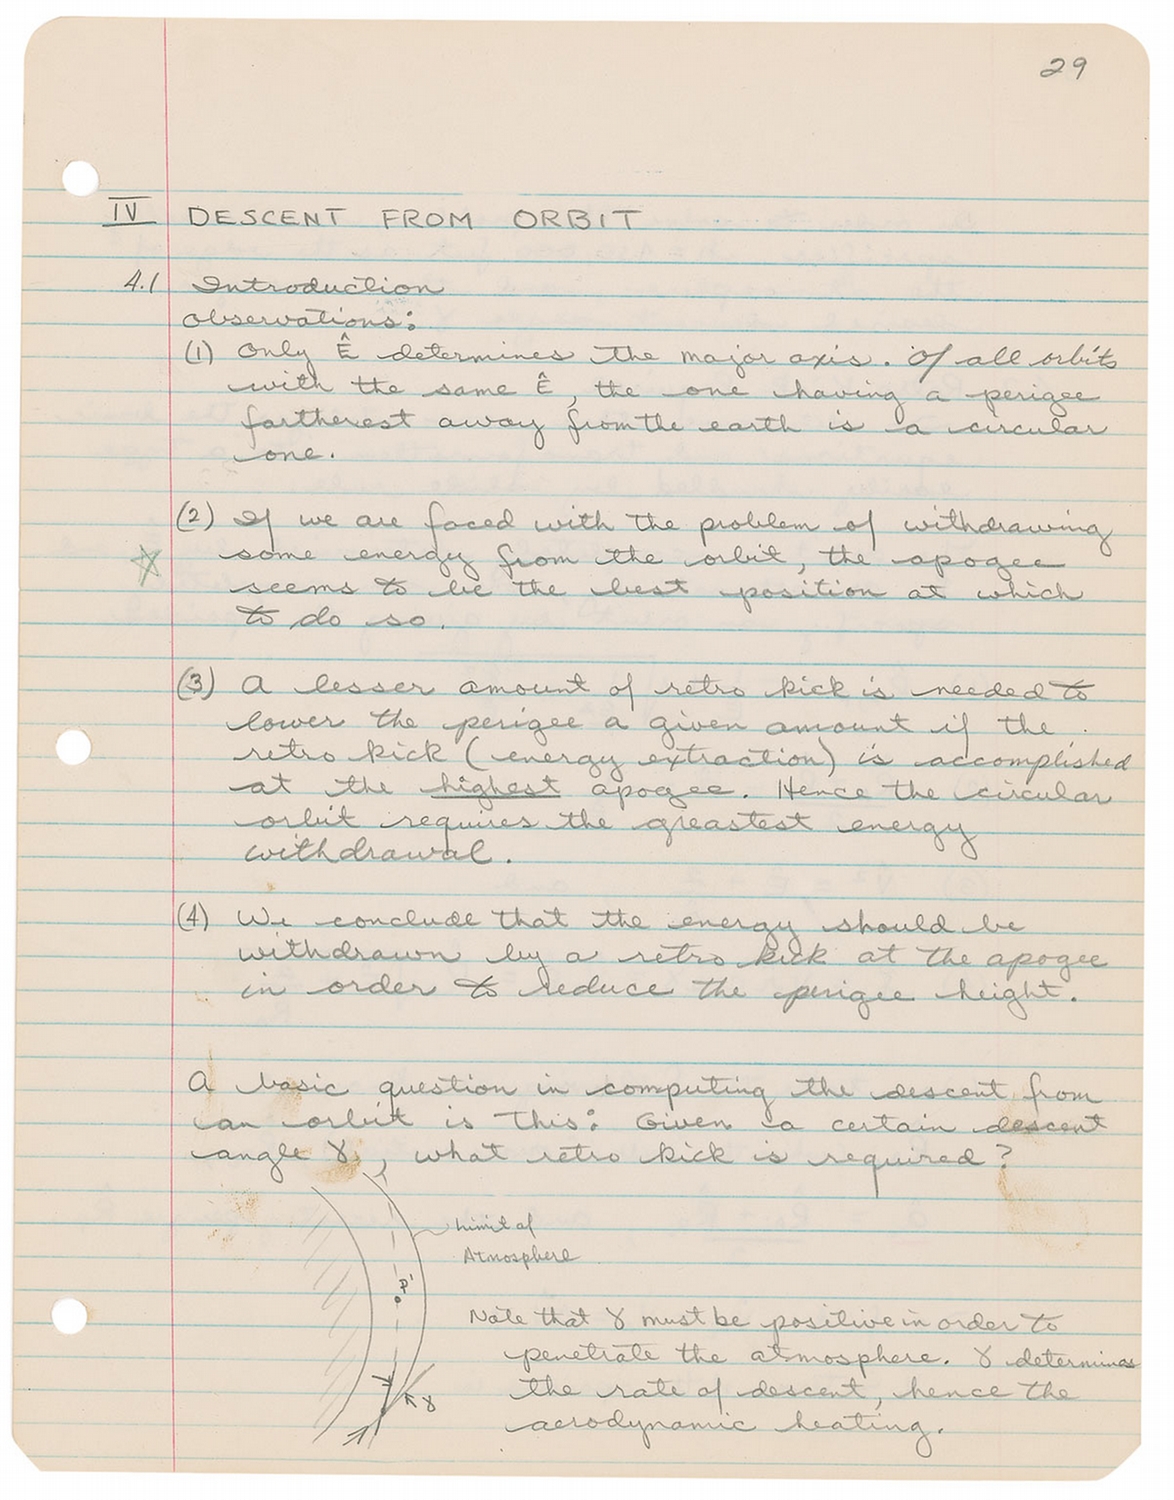 29
IV DESCENT FROM ORBIT
4.1 Introduction
Observations:
(1) Only Ê determines the major axis. Of all orbits
with the same Ê, the one having a perigee
fartherest away from the earth is a circular
one.
(2) If we are faced with the problem of withdrawing
some energy from the orbit, the apogee
seems to be the best position at which
to do so.
(3) A lesser amount of retro kick is needed to
lower the perigee a given amount if the
retro kick (energy extraction) is accomplished
at the highest apogee. Hence the circular
orbit requires the greastest energy
withdrawal.
(4) We conclude that the energy should be
withdrawn by a retro kick at the apogee
in order to reduce the perigee height.
A basic question in computing the descent from
an orbit is this: Given a certain descent
angle γ, what retro kick is required?
Limit of
Atmosphere
P'
Note that γ must be positive in order to
penetrate the atmosphere. γ determines
the rate of descent, hence the
γ
aerodynamic heating.